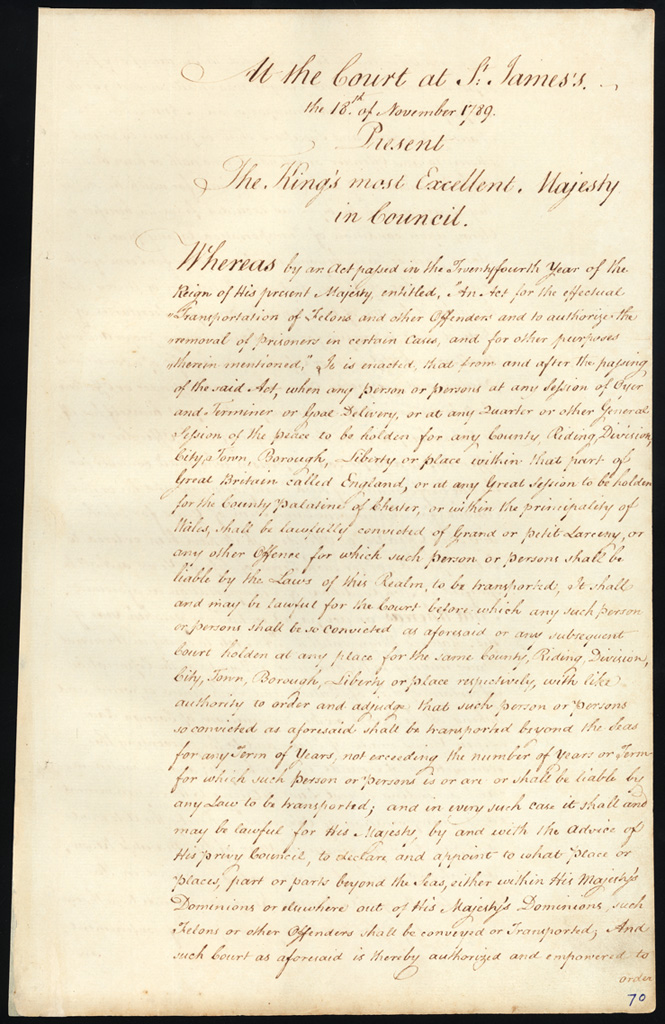 At the Court at St. James's.
the 18th. of November 1789.
Present
The King's most Excellent Majesty
in Council.
Whereas by an Act passed in the Twentyfourth Year of the
Reign of His present Majesty, entitled, "An Act for the effectual
"Transportation of Felons and other Offenders and to authorize the
"removal of prisoners in certain Cases, and for other purposes
"therein mentioned," It is enacted, that from and after the passing
of the said Act, when any person or persons at any Session of Oyer
and Terminer or Goal Delivery, or at any Quarter or other General
Session of the peace to be holden for any County, Riding, Division,
City, Town, Borough, Liberty or place within that part of
Great Britain called England, or at any Great Session to be holden
for the County Palatine of Chester, or within the principality of
Wales, shall be lawfully convicted of Grand or petit Larceny, or
any other Offence for which such person or persons shall be
liable by the Laws of this Realm, to be transported, It shall
and may be lawful for the Court before which any such person
or persons shall be so convicted as aforesaid or any subsequent
Court holden at any place for the same County, Riding, Division,
City, Town, Borough, Liberty or place respectively, with like
authority to order and adjudge that such person or persons
so convicted as aforesaid shall be transported beyond the Seas
for any Term of Years, not exceeding the number of Years or Term
for which such person or persons is or are or shall be liable by
any Law to be transported; and in every such case it shall and
may be lawful for His Majesty, by and with the advice of
His privy Council, to declare and appoint to what place or
places, part or parts beyond the Seas, either within His Majesty's
Dominions or elsewhere out of His Majesty's Dominions, such
Felons or other Offenders shall be conveyed or Transported; And
such Court as aforesaid is thereby authorized and empowered to
order
70